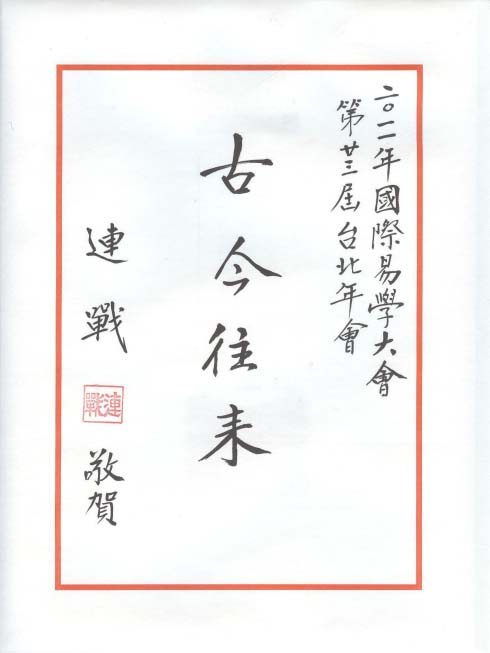 二〇一一年國際易學大會
第廿三屆台北年會
古今往来
連戰
連戰
敬賀